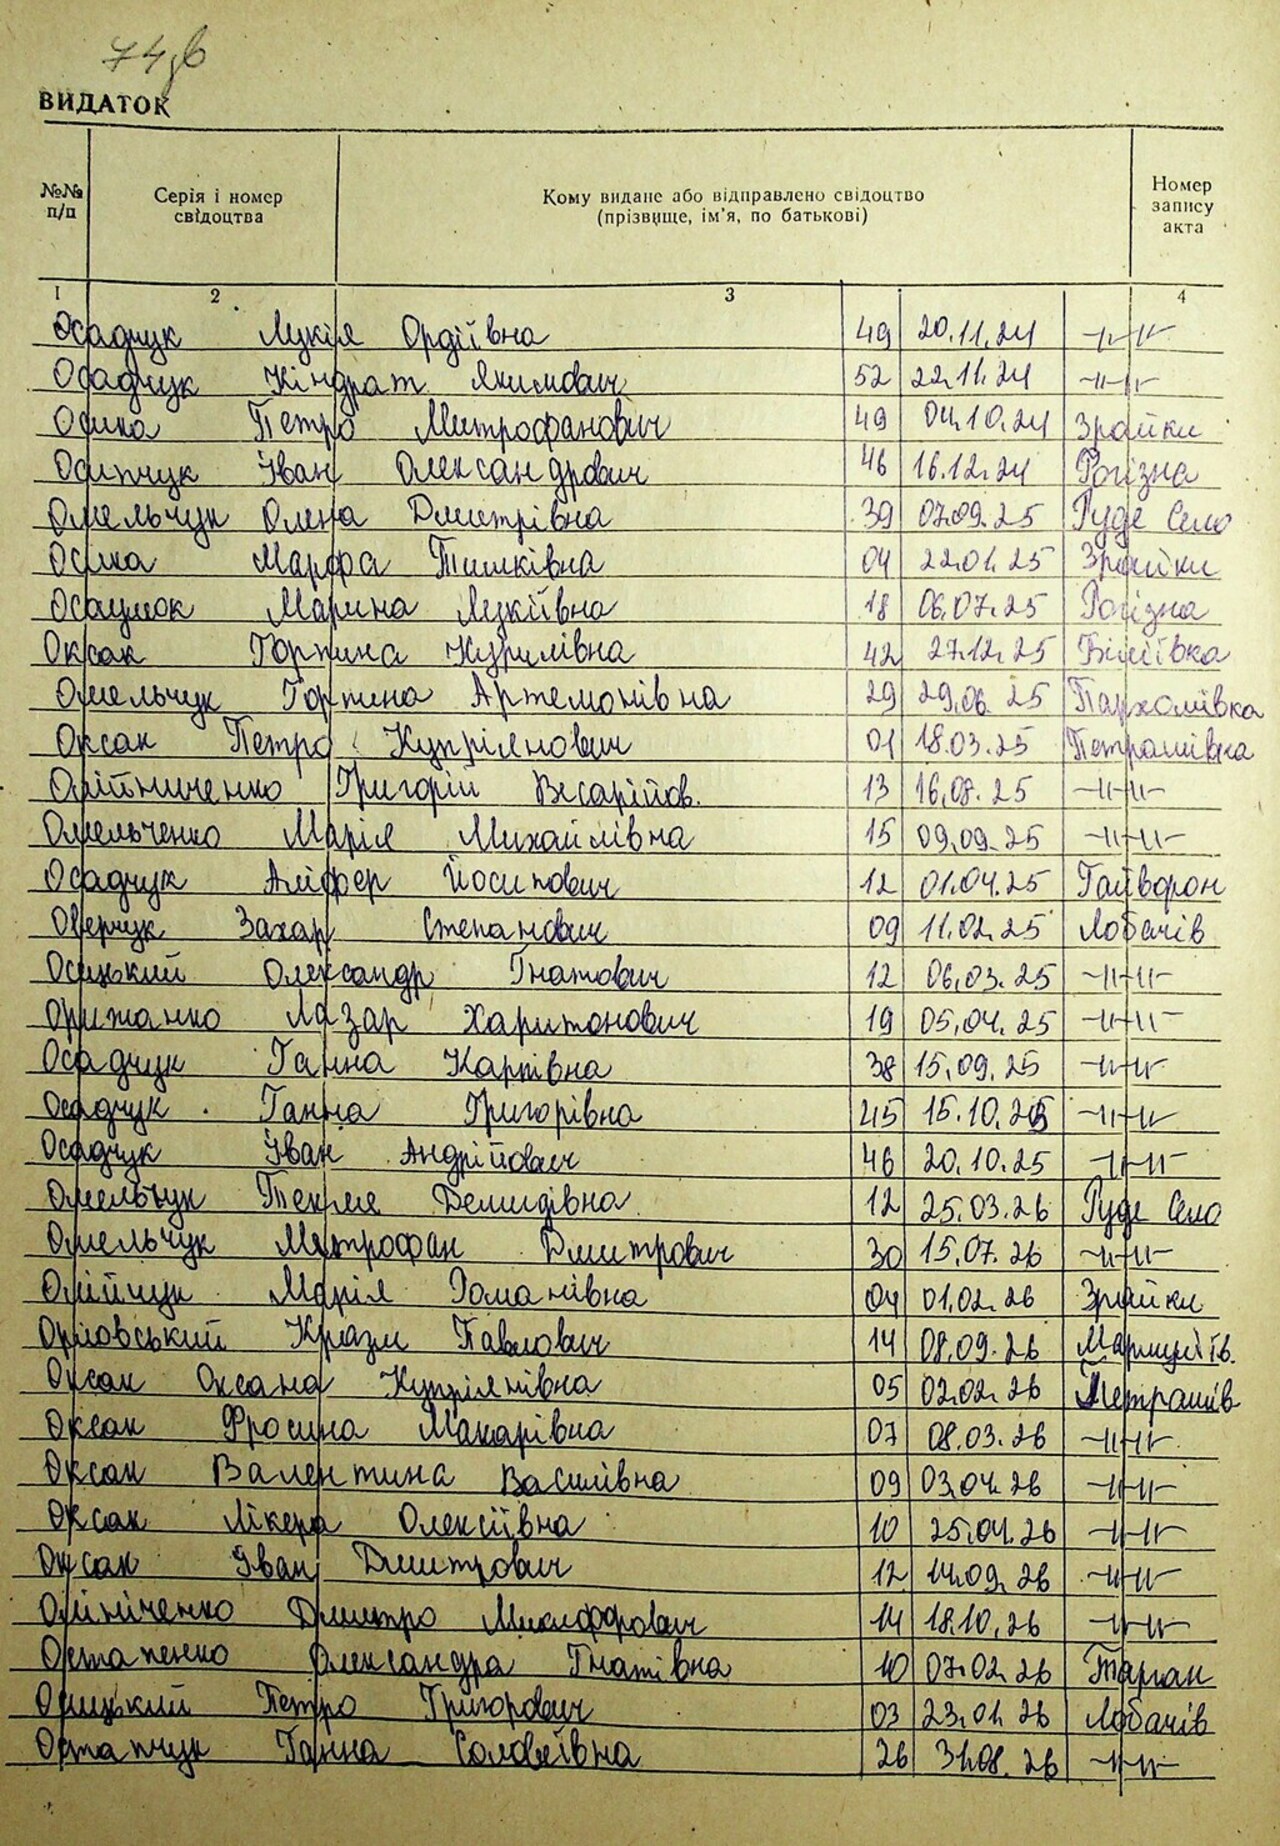 74
ВИДАТОК
№№ п/п Серія і номер свідоцтва Кому видане або відправлено свідоцтво (прізвище, ім'я, по батькові) Номер запису акта
1 2 3 4
Осадчук Лукія Ордіївна 49 20.11.24 -||-||-
Осадчук Кіндрат Якимович 52 22.11.24 -||-||-
Осика Петро Митрофанович 49 04.10.24 Зрайки
Осипчук Іван Олександрович 46 16.12.24 Рогізна
Омельчук Олена Дмитрівна 39 07.09.25 Руде Село
Осика Марфа Тимківна 04 22.01.25 Зрайки
Марина Лукіївна 18 06.07.25 Рогізна
Оксак Горпина Курилівна 42 27.12.25
Омельчук Горпина Артемонівна 29 29.06.25 Пархомівка
Оксак Петро Купріянович 01 18.03.25 Петрашівка
Олійниченко Григорій Весарійов. 13 16.08.25 -||-||-
Омельченко Марія Михайлівна 15 09.09.25 -||-||-
Осадчук Алфер Йосипович 12 01.04.25 Гайворон
Оверчук Захар Степанович 09 11.02.25 Лобачів
Осицький Олександр Гнатович 12 06.03.25 -||-||-
Оржанко Лазар Харитонович 19 05.04.25 -||-||-
Осадчук Ганна Карпівна 38 15.09.25 -||-||-
Осадчук Ганна Григорівна 45 15.10.25 -||-||-
Осадчук Іван Андрійович 46 20.10.25 -||-||-
Омельчук Текля Демидівна 12 25.03.26 Руде Село
Омельчук Митрофан Дмитрович 30 15.07.26 -||-||-
Олійчук Марія Романівна 04 01.02.26 Зрайки
Орловський Павлович 14 08.09.26
Оксак Оксана Купріянівна 05 02.02.26 Петрашів
Оксак Фросина Макарівна 07 08.03.26 -||-||-
Оксак Валентина Василівна 09 03.04.26 -||-||-
Оксак Лікера Олексіївна 10 25.04.26 -||-||-
Оксак Іван Дмитрович 12 14.09.26 -||-||-
Олініченко Дмитро Микифорович 14 18.10.26 -||-||-
Остапенко Олександра Гнатівна 10 07.02.26 Тарган
Осицький Петро Григорович 03 23.01.26 Лобачів
Остапчук Ганна Соловеївна 26 31.08.26 -||-||-